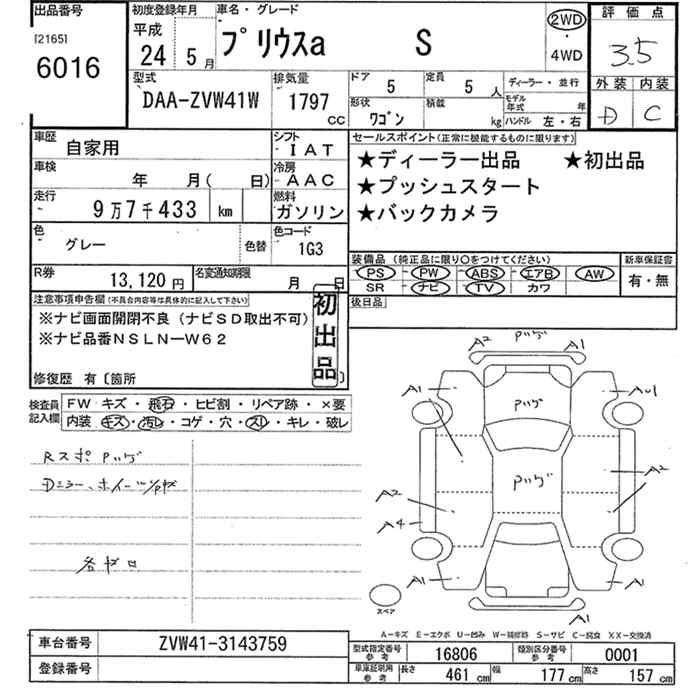 出品番号 初度登録年月 車名・グレード 2WD 評価点
[2165] 平成 ・ 3.5
6016 24 5月 プリウスa S 4WD
型式 排気量 ドア 5 定員 5人 ディーラー・並行 外装 内装
DAA-ZVW41W 1797cc 形状 ワゴン 積載 kg モデル年式 年 D C
ハンドル 左・右
車歴 自家用 シフト IAT セールスポイント(正常に機能するものに限ります)
車検 年 月( 日) 冷房 AAC ★ディーラー出品 ★初出品
走行 9万7千433 km 燃料 ガソリン ★プッシュスタート
★バックカメラ
色 グレー 色替 色コード 1G3
装備品(純正品に限り○をつけてください) 新車保証書
R券 13,120円 名変通知期限 月 日 PS PW ABS エアB AW 有・無
SR ナビ TV カワ
注意事項申告欄(不具合内容等は具体的に記入して下さい) 後日品
※ナビ画面開閉不良(ナビSD取出不可)
※ナビ品番NSLN-W62
初出品
修復歴 有〔箇所
検査員記入欄 FW キズ・飛石・ヒビ割・リペア跡・×要
内装 キズ・汚レ・コゲ・穴・スレ・キレ・破レ
A2 A1
A1 AU1
A2 A2
A4
A1 A1
A1
スペア
A-キズ E-エクボ U-凹み W-補修跡 S-サビ C-腐食 XX-交換済
車台番号 ZVW41-3143759 型式指定番号 参考 16806 類別区分番号 参考 0001
登録番号 車庫証明用 参考 長さ 461cm 幅 177cm 高さ 157cm